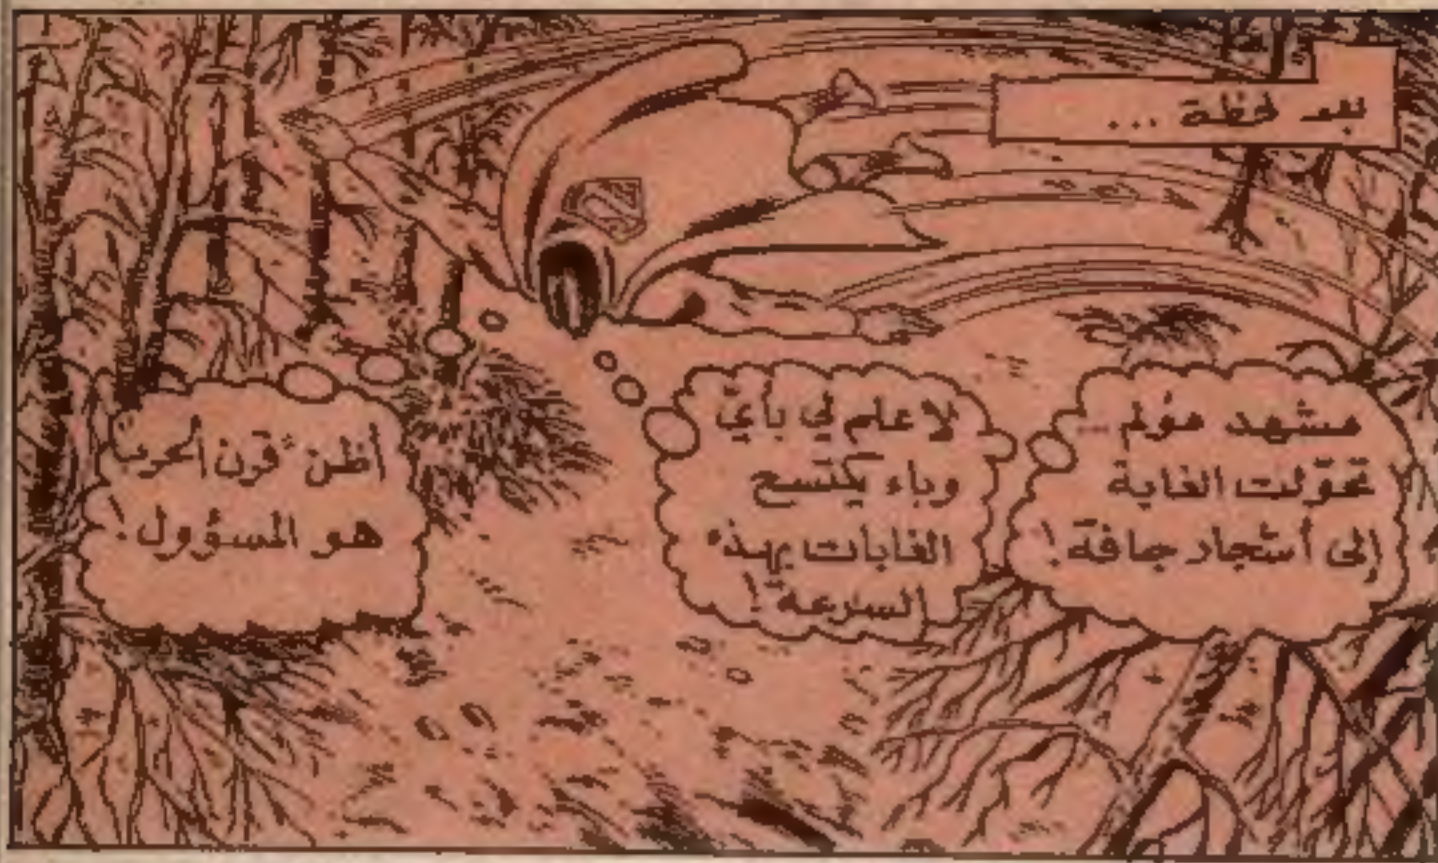 بعد لحظة ...
مشهد مؤلم ...
تحوّلت الغابة
إلى أشجار جافة!
لا علم لي بأيّ
وباء يكتسح
الغابات بهذه
السرعة!
أظن "قرن الحرب"
هو المسؤول!